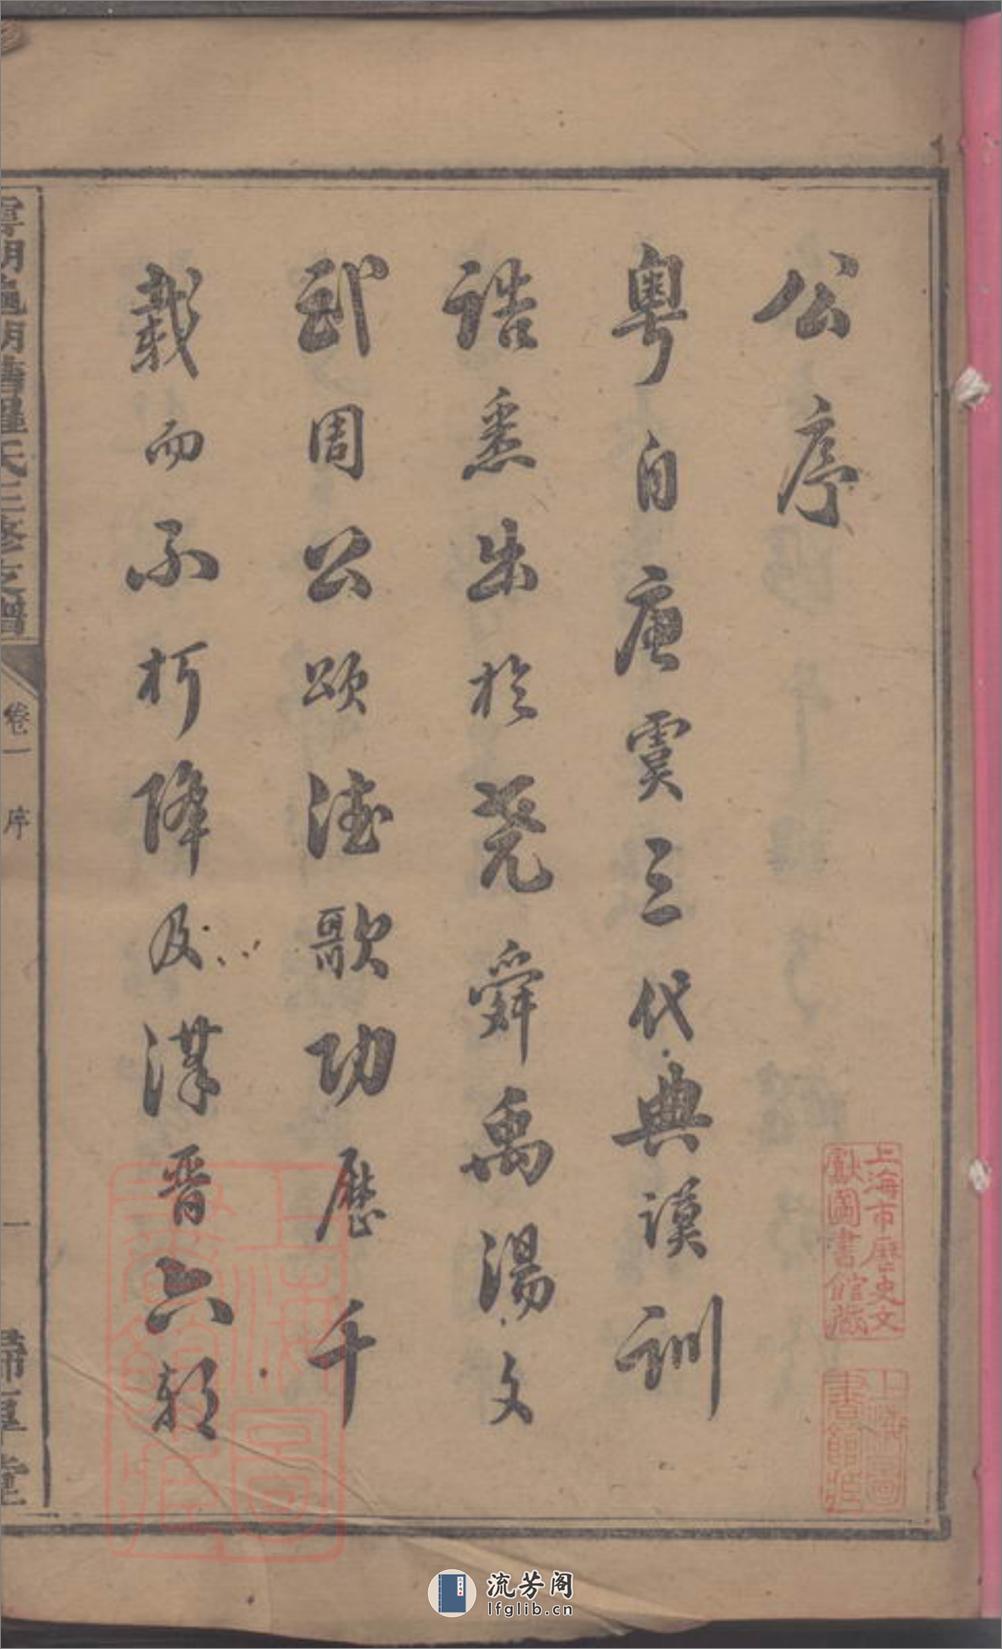 公序
粵自唐虞三代典謨訓
誥悉出於堯舜禹湯文
武周公頌德歌功歷千
載而不朽降及漢晉六朝
氏三修支譜
卷一
序
一
歸厚堂
上海市歷史文
獻圖書館藏
上海圖
書館藏
上海圖
書館藏
流芳阁
lfglib.cn